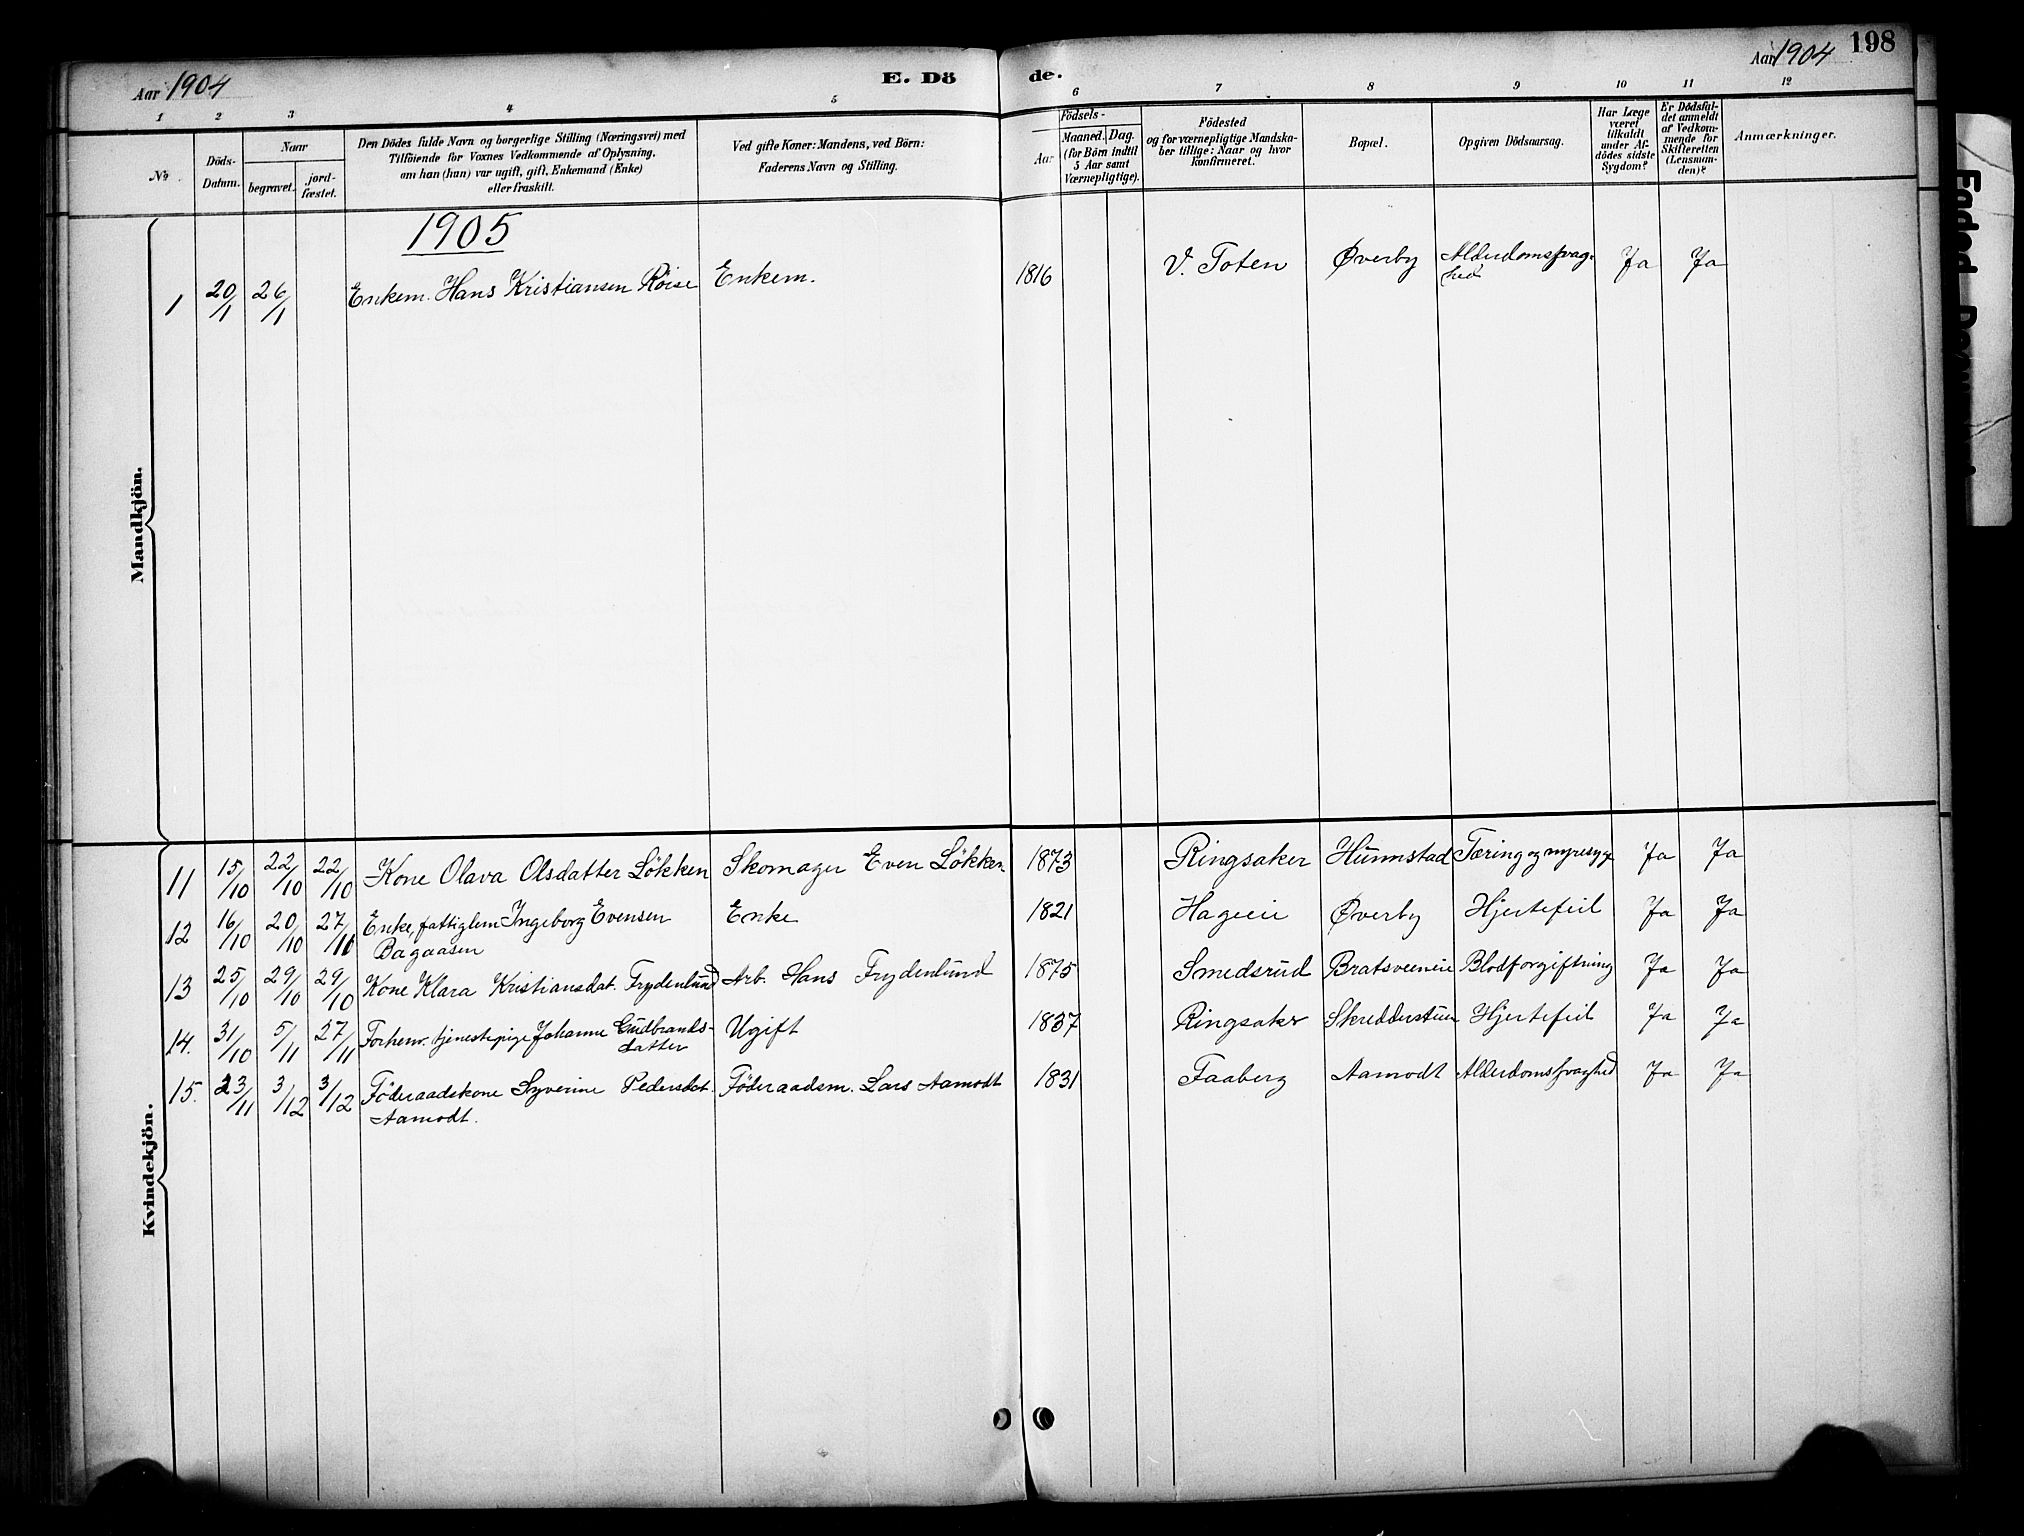 Aar 1904
E. Döde.
Aar 1904
198
1 2 3 4 5 6 7 8 9 10 11 12
No.
Döds-Datum.
Naar
begravet.
jord-fæstet.
Den Dödes fulde Navn og borgerlige Stilling (Næringsvei) med
Tilföiende for Voxnes Vedkommende af Oplysning,
om han (hun) var ugift, gift, Enkemand (Enke)
eller fraskilt.
Ved gifte Koner: Mandens, ved Börn:
Faderens Navn og Stilling.
Födsels-
Aar
Maaned. Dag.
(for Börn indtil
5 Aar samt
Værnepligtige).
Födested
og for værnepligtige Mandska-
ber tillige: Naar og hvor
konfirmeret.
Bopæl.
Opgiven Dödsaarsag.
Har Læge
været
tilkaldt
under Af-
dödes sidste
Sygdom?
Er Dödsfal-
det anmeldt
af Vedkom-
mende for
Skifteretten
(Lensman-
den)?
Anmærkninger.
Mandkjön.
1905
1 20/1 26/1 Enkem. Hans Kristiansen Röise Enkem. 1816 V. Toten Øverby Alderdomssvag-
hed Ja Ja
Kvindekjön.
11 15/10 22/10 22/10 Kone Olava Olsdatter Lökken Skomager Even Lökken 1873 Ringsaker Hunnstad Tæring og nyresyge Ja Ja
12 16/10 20/10 27/10 Enke, fattiglem Ingeborg Evensen Enke 1821 Hageeie Øverby Hjertefeil Ja Ja
Bagaasen
13 25/10 29/10 29/10 Kone Klara Kristiansdat. Frydenlund Arb. Hans Frydenlund 1875 Smedsrud Bratsveeneie Blodforgiftning Ja Ja
14. 31/10 5/11 27/11 Forhenv. tjenestepige Johanne Gudbrands- Ugift 1837 Ringsaker Skredderstuen Hjertefeil Ja Ja
datter
15. 23/11 3/12 3/12 Föderaadskone Syverine Pedersdat. Föderaadsm. Lars Aamodt 1831 Faaberg Aamodt Alderdomssvaghed Ja Ja
Aamodt.